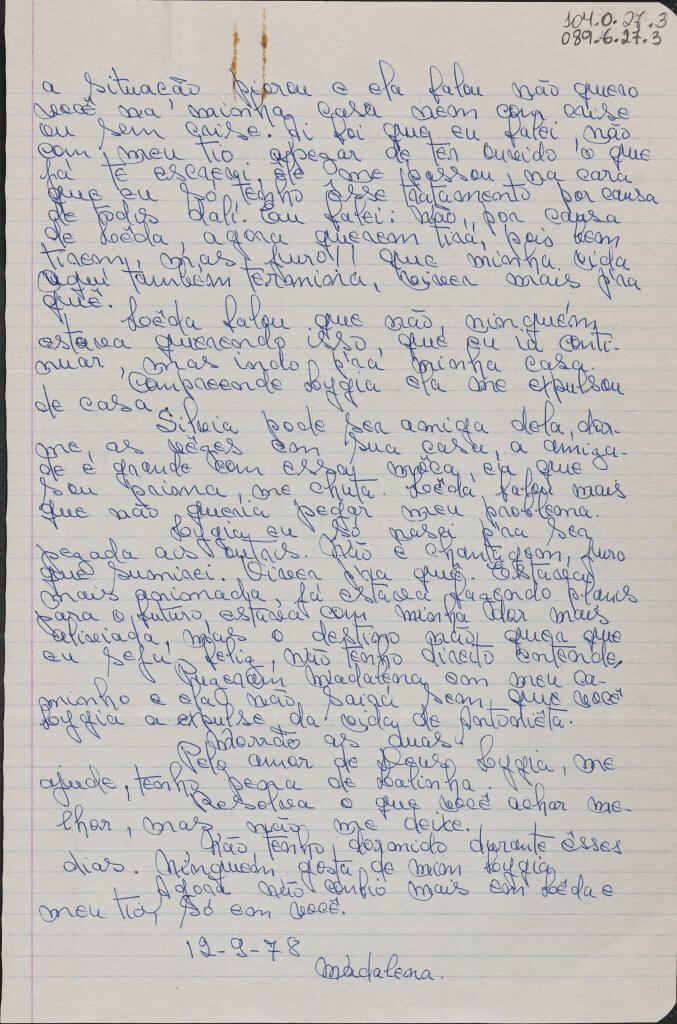 104.0.27.3
089.6.27.3
a situação piorou e ela falou não quero
você na minha casa nem com crise
ou sem crise. Aí foi que eu falei, não
com, meu tio apezar de ter ouvido o que
já te escrevi, ele me passou na cara
que eu só tenho êsse tratamento por causa
de todos dali. Eu falei: não, por causa
de Loêda, agora querem tirá, pois bem
tirem, mas juro!! que minha vida
aqui também termina, viver mais p'ra
quê.
Loêda falou que não, ninguém
estava querendo isso, que eu ia conti-
nuar, mas indo p'ra minha casa.
Compreende Lyggia ela me expulsou
de casa.
Silvia pode ser amiga dela, dor-
me, as vêzes em sua casa, a amiza-
de é grande com essa môça, eu que
sou prima, me chuta. Loêda falou mais
que não queria pegar meu problema.
Lyggia, eu só nasci p'ra ser
pegada aos outros. Não é chantagem, juro
que sumirei. Viver p'ra quê. Estava
mais animada, já estava fazendo planos
para o futuro, estava com minha dor mais
aliviada, mas o destino não quer que
eu seja feliz, não tenho direito entende,
Puzeram Madalena em meu ca-
minho e ela não sairá sem que você
Lyggia a expulse da vida de Antoniêta.
Morrão as duas.
Pelo amor de Deus Lyggia, me
ajude, tenho pena de Balinha.
Resolva o que você achar me-
lhor, mas não me deixe.
Não tenho dormido durante êsses
dias. Ninguém gosta de mim Lyggia
Agora não confio mais em Loêda e
meu tio, só em você.
12-9-78
Madalena.